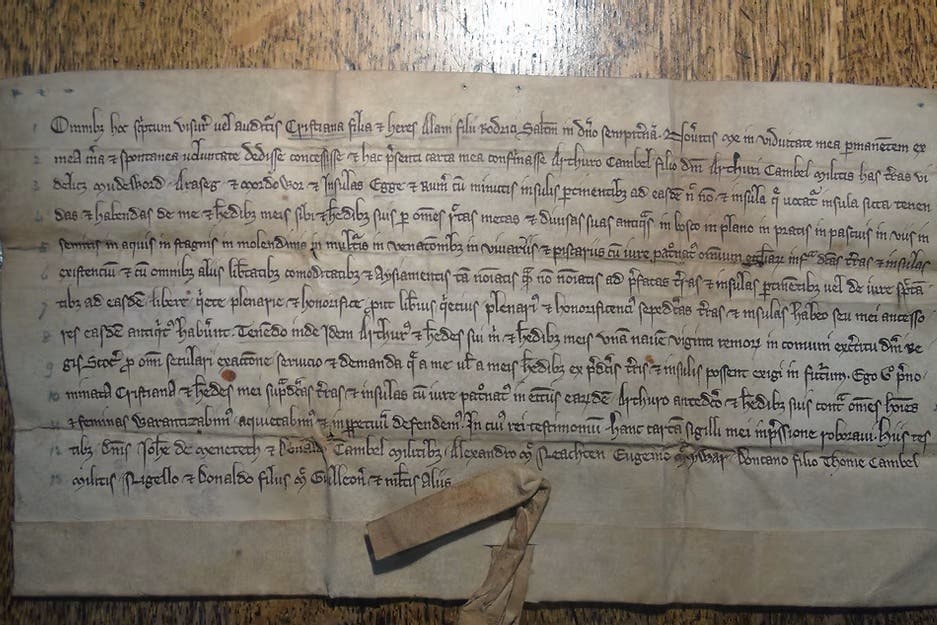 1 Omnibȝ hoc sc'ptum visur' uel auditur' Cristiana filia ⁊ heres Alani filii Rodrici Saltm in dno sempit'na. Nou'itis me in viduitate mea p'manētem ex
2 mea m'a ⁊ spontanea voluntate dedisse concessisse ⁊ hac p'senti carta mea confirmasse Arthuro Cambel filio dni Arthuri Cambel militis has t'ras vi
3 delicȝ Mudeword Araseg ⁊ Mordowor ⁊ Insulas Egge ⁊ Rum cū minutis insulis p'tinentibȝ ad easdē n' nō ⁊ insula q' uocat' insula sicca tenen
4 das ⁊ habendas de me ⁊ h'edibȝ meis sibi ⁊ h'edibȝ suis p' om̄es r'ctas metas ⁊ diuisas suas antiq's in bosco in plano in pratis in pascuis in viis in
5 semitis in aquis in stagnis in molendinis in multur' in venatōnibȝ in viuariis ⁊ piscariis cū iure pat'nat' omniū eccl'iar' infra d'cas t'ras ⁊ insulas
6 existenciū ⁊ cū omnibȝ aliis lib'tatibȝ comoditatibȝ ⁊ Aysiamentis tā noīatis q'm nō noīatis ad p'fatas t'ras ⁊ insulas p'tinētibȝ vel de iure sp'ctā
7 tibȝ ad easdē libere q'ete plenarie ⁊ honorifice put lib'ius q'ecius pleni' ⁊ honorificenci' seped'tas t'ras ⁊ insulas habeo seu mei antecesso
8 res easdē antiq't' hab'unt. Tenēdo inde idem Arthur' ⁊ h'edes sui m' ⁊ h'edibȝ meis vnā nauē viginti remor' in comuni ex'citu dni Re
9 gis Scoc' p' om̄i seculari exactōne seruicio ⁊ demanda q' a me ul' a meis h'edibȝ ex p'd'tis t'ris ⁊ insulis possent exigi in futur'm. Ego v' p'no
10 minata Cristiana ⁊ h'edes mei sup'd'cas t'ras ⁊ insulas cū iure pat'nat' in ecciis earūdē Arthuro anted'co ⁊ h'edibȝ suis cont' om̄es ho'ies
11 ⁊ feminas warantizabim' aquietabim' ⁊ imp'petuū defendem' In cui' rei testimoniū hanc cartā sigilli mei imp'ssione roboraui. Hiis tes
12 tibȝ dnis Joh'e de Meneteth ⁊ Donaldo Cambel militibȝ Alexandro m' Neachten Eugenio Duncano filio Thome Cambel
13 militis Nigello ⁊ Donaldo filiis m' Gilleon' ⁊ m'ltis aliis